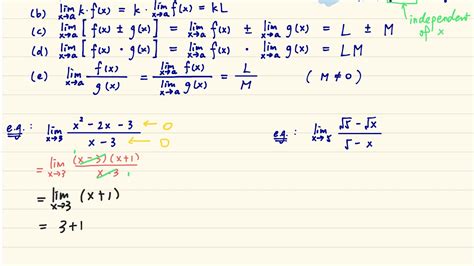 (b) lim x→a k·f(x) = k·lim x→a f(x) = kL
independent of x
(c) lim x→a [f(x) ± g(x)] = lim x→a f(x) ± lim x→a g(x) = L ± M
(d) lim x→a [f(x)·g(x)] = lim x→a f(x)·lim x→a g(x) = LM
(e) lim x→a f(x)/g(x) = lim x→a f(x)/lim x→a g(x) = L/M (M≠0)
e.g.: lim x→3 x²-2x-3 ← 0 / x-3 ← 0
= lim x→3 (x-3)(x+1)/x-3 1 1
= lim x→3 (x+1)
= 3+1
e.g.: lim x→5 √5-√x / 5-x